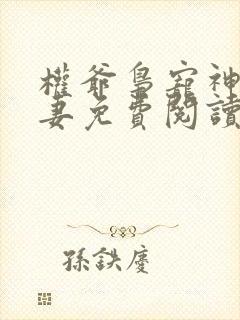 權爺梟寵神
妻免費閱讀
孫鉄慶